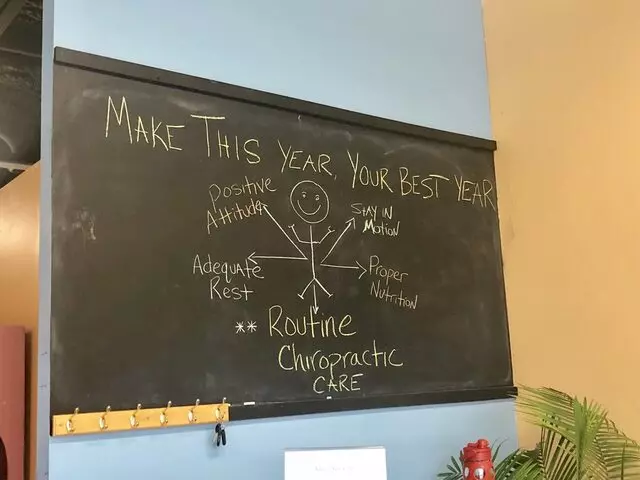 MAKE THIS YEAR, YOUR BEST YEAR
Positive
Attitude
STAY IN
MOTION
Adequate
Rest
Proper
Nutrition
** Routine
Chiropractic
CARE